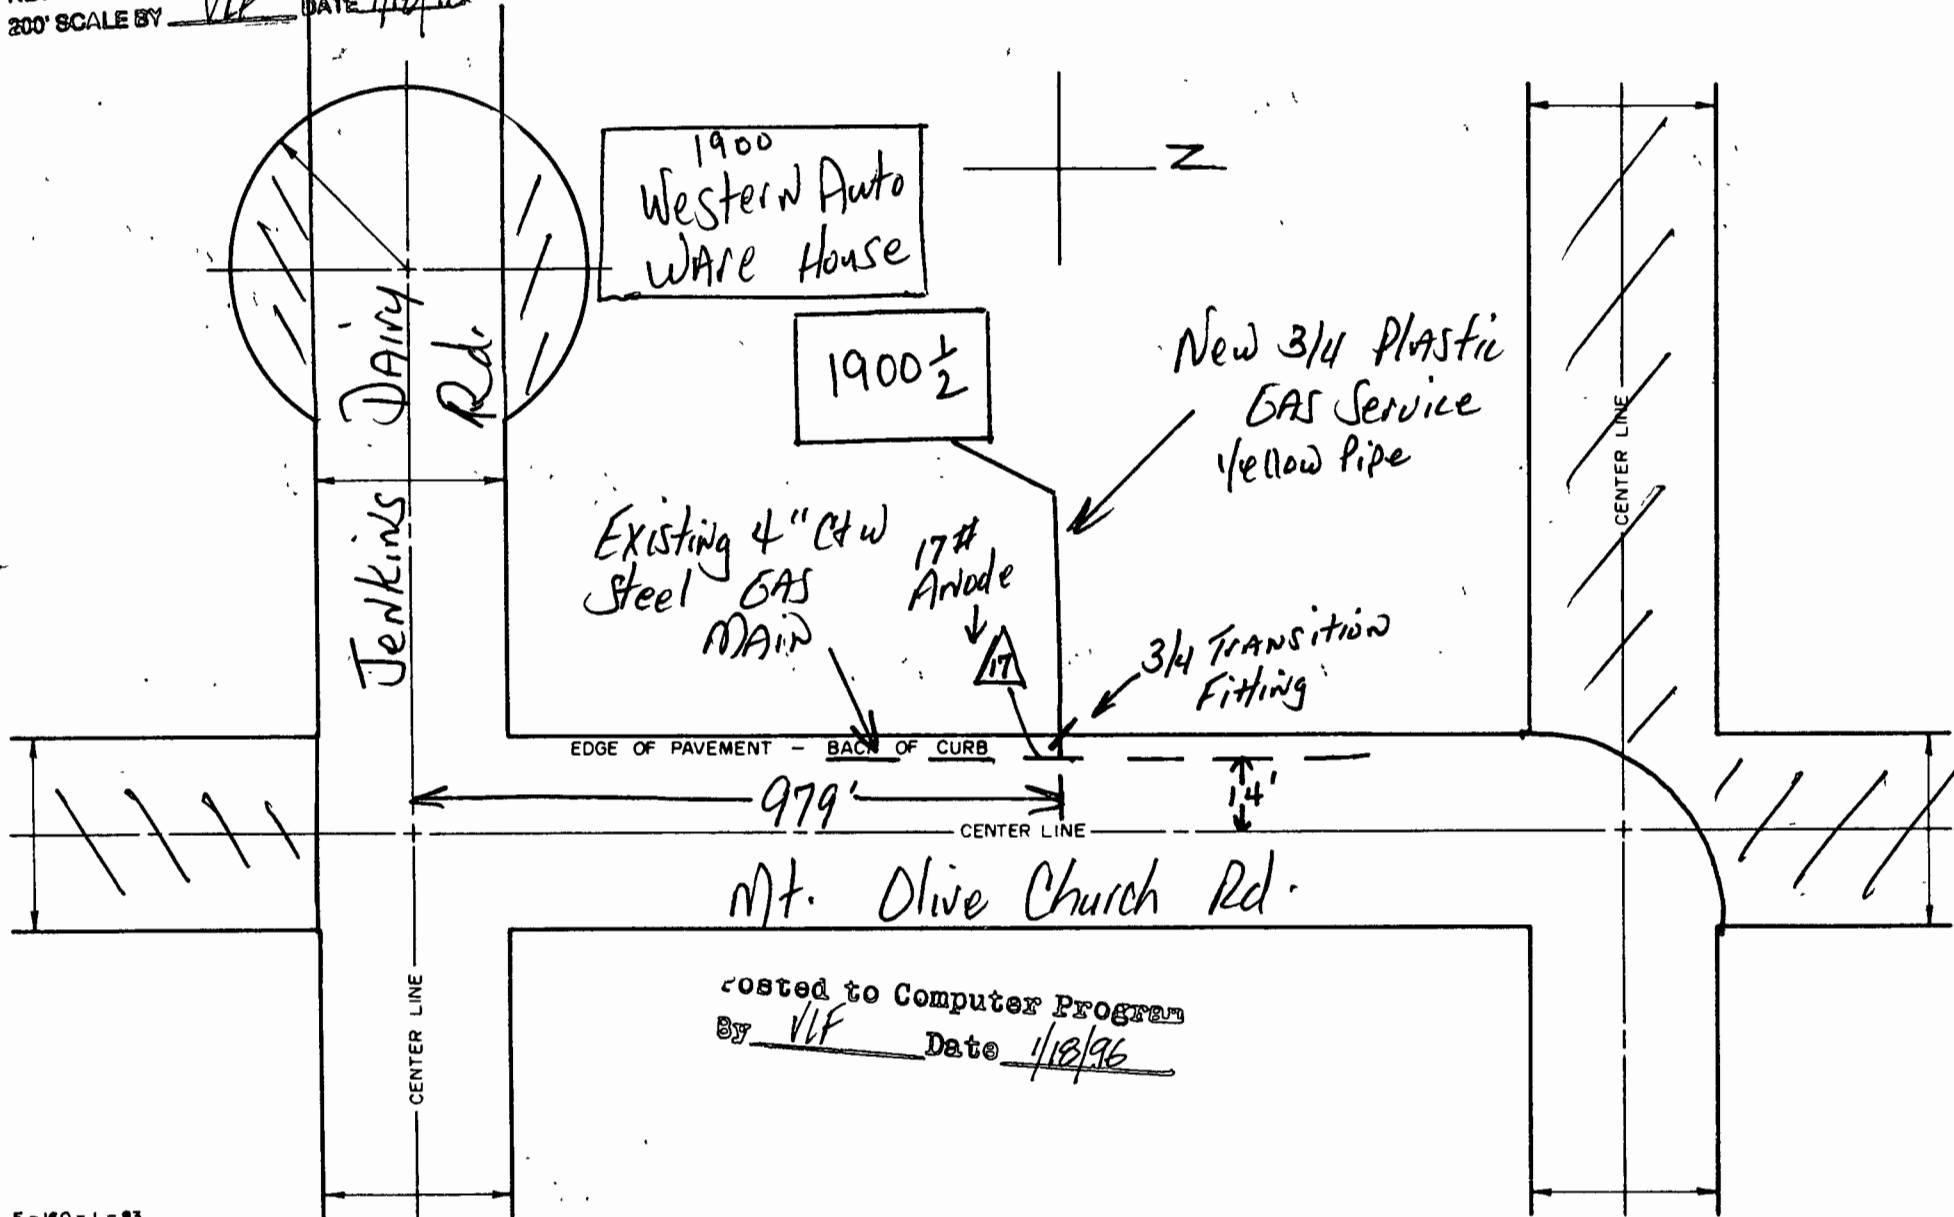 200' SCALE BY VLF DATE
1900
Western Auto
Ware House
N
1900 1/2
New 3/4 Plastic
GAS Service
Yellow Pipe
Jenkins Dairy
Rd.
CENTER LINE
Existing 4" Ctw
Steel GAS
MAIN
17#
Anode
17
3/4 Transition
Fitting
EDGE OF PAVEMENT - BACK OF CURB
979'
14'
CENTER LINE
Mt. Olive Church Rd.
CENTER LINE
Posted to Computer Program
By VLF Date 1/18/96